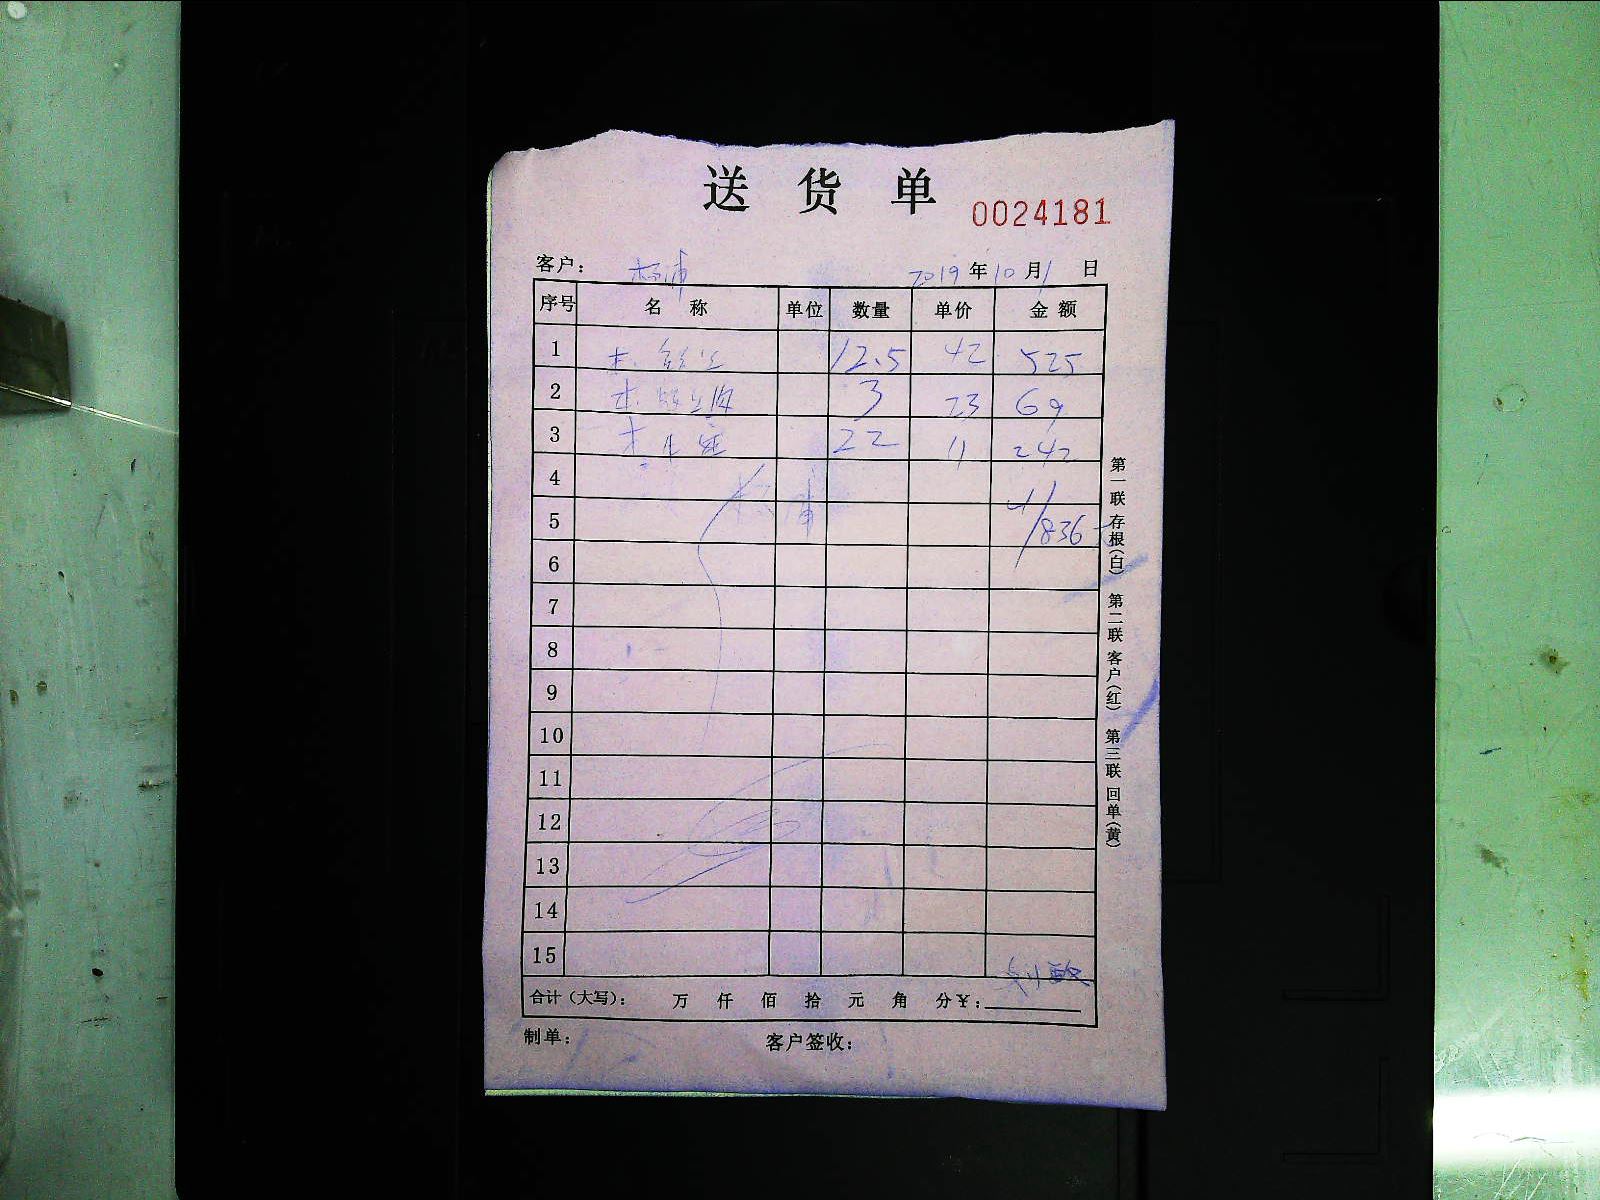 送 货 单
0024181
客户： 杨浦 2019 年 10 月 1 日
序号 名 称 单位 数量 单价 金 额
1 12.5 42 525
2 3 23 69
3 22 11 242
4
5 836
6
7
8
9
10
11
12
13
14
15
合计（大写）： 万 仟 佰 拾 元 角 分￥：
制单： 客户签收：
第一联 存根（白） 第二联 客户（红） 第三联 回单（黄）